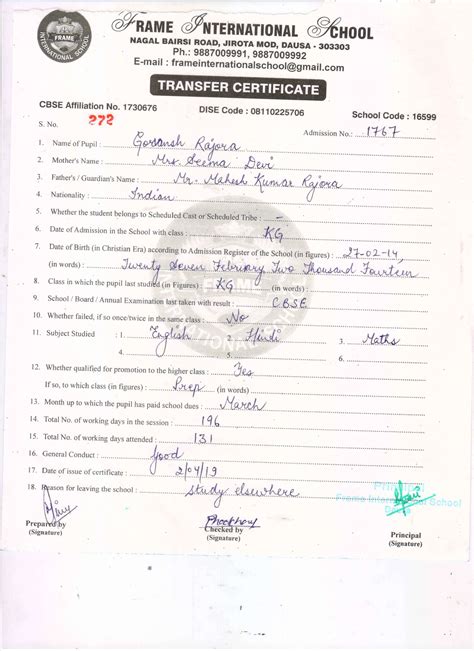 FRAME INTERNATIONAL SCHOOL
NAGAL BAIRSI ROAD, JIROTA MOD, DAUSA - 303303
Ph.: 9887009991, 9887009992
E-mail : frameinternationalschool@gmail.com
TRANSFER CERTIFICATE
CBSE Affiliation No. 1730676 DISE Code : 08110225706 School Code : 16599
S. No. 272 Admission No.: 1767
1. Name of Pupil : Goransh Rajora
2. Mother's Name : Mrs. Seema Devi
3. Father's / Guardian's Name : Mr. Mahesh Kumar Rajora
4. Nationality : Indian
5. Whether the student belongs to Scheduled Cast or Scheduled Tribe : -
6. Date of Admission in the School with class : KG
7. Date of Birth (in Christian Era) according to Admission Register of the School (in figures) : 27-02-14,
(in words) : Twenty Seven February Two Thousand Fourteen
8. Class in which the pupil last studied (in Figures) : KG (in words) :
9. School / Board / Annual Examination last taken with result : CBSE
10. Whether failed, if so once/twice in the same class : No
11. Subject Studied : 1. English 2. Hindi 3. Maths
4. 5. 6.
12. Whether qualified for promotion to the higher class : Yes
If so, to which class (in figures) : Prep (in words)
13. Month up to which the pupil has paid school dues : March
14. Total No. of working days in the session : 196
15. Total No. of working days attended : 131
16. General Conduct : Good
17. Date of issue of certificate : 2/04/19
18. Reason for leaving the school : Study elsewhere
Principal
Frame International School
Prepared by Checked by Principal
(Signature) (Signature) (Signature)